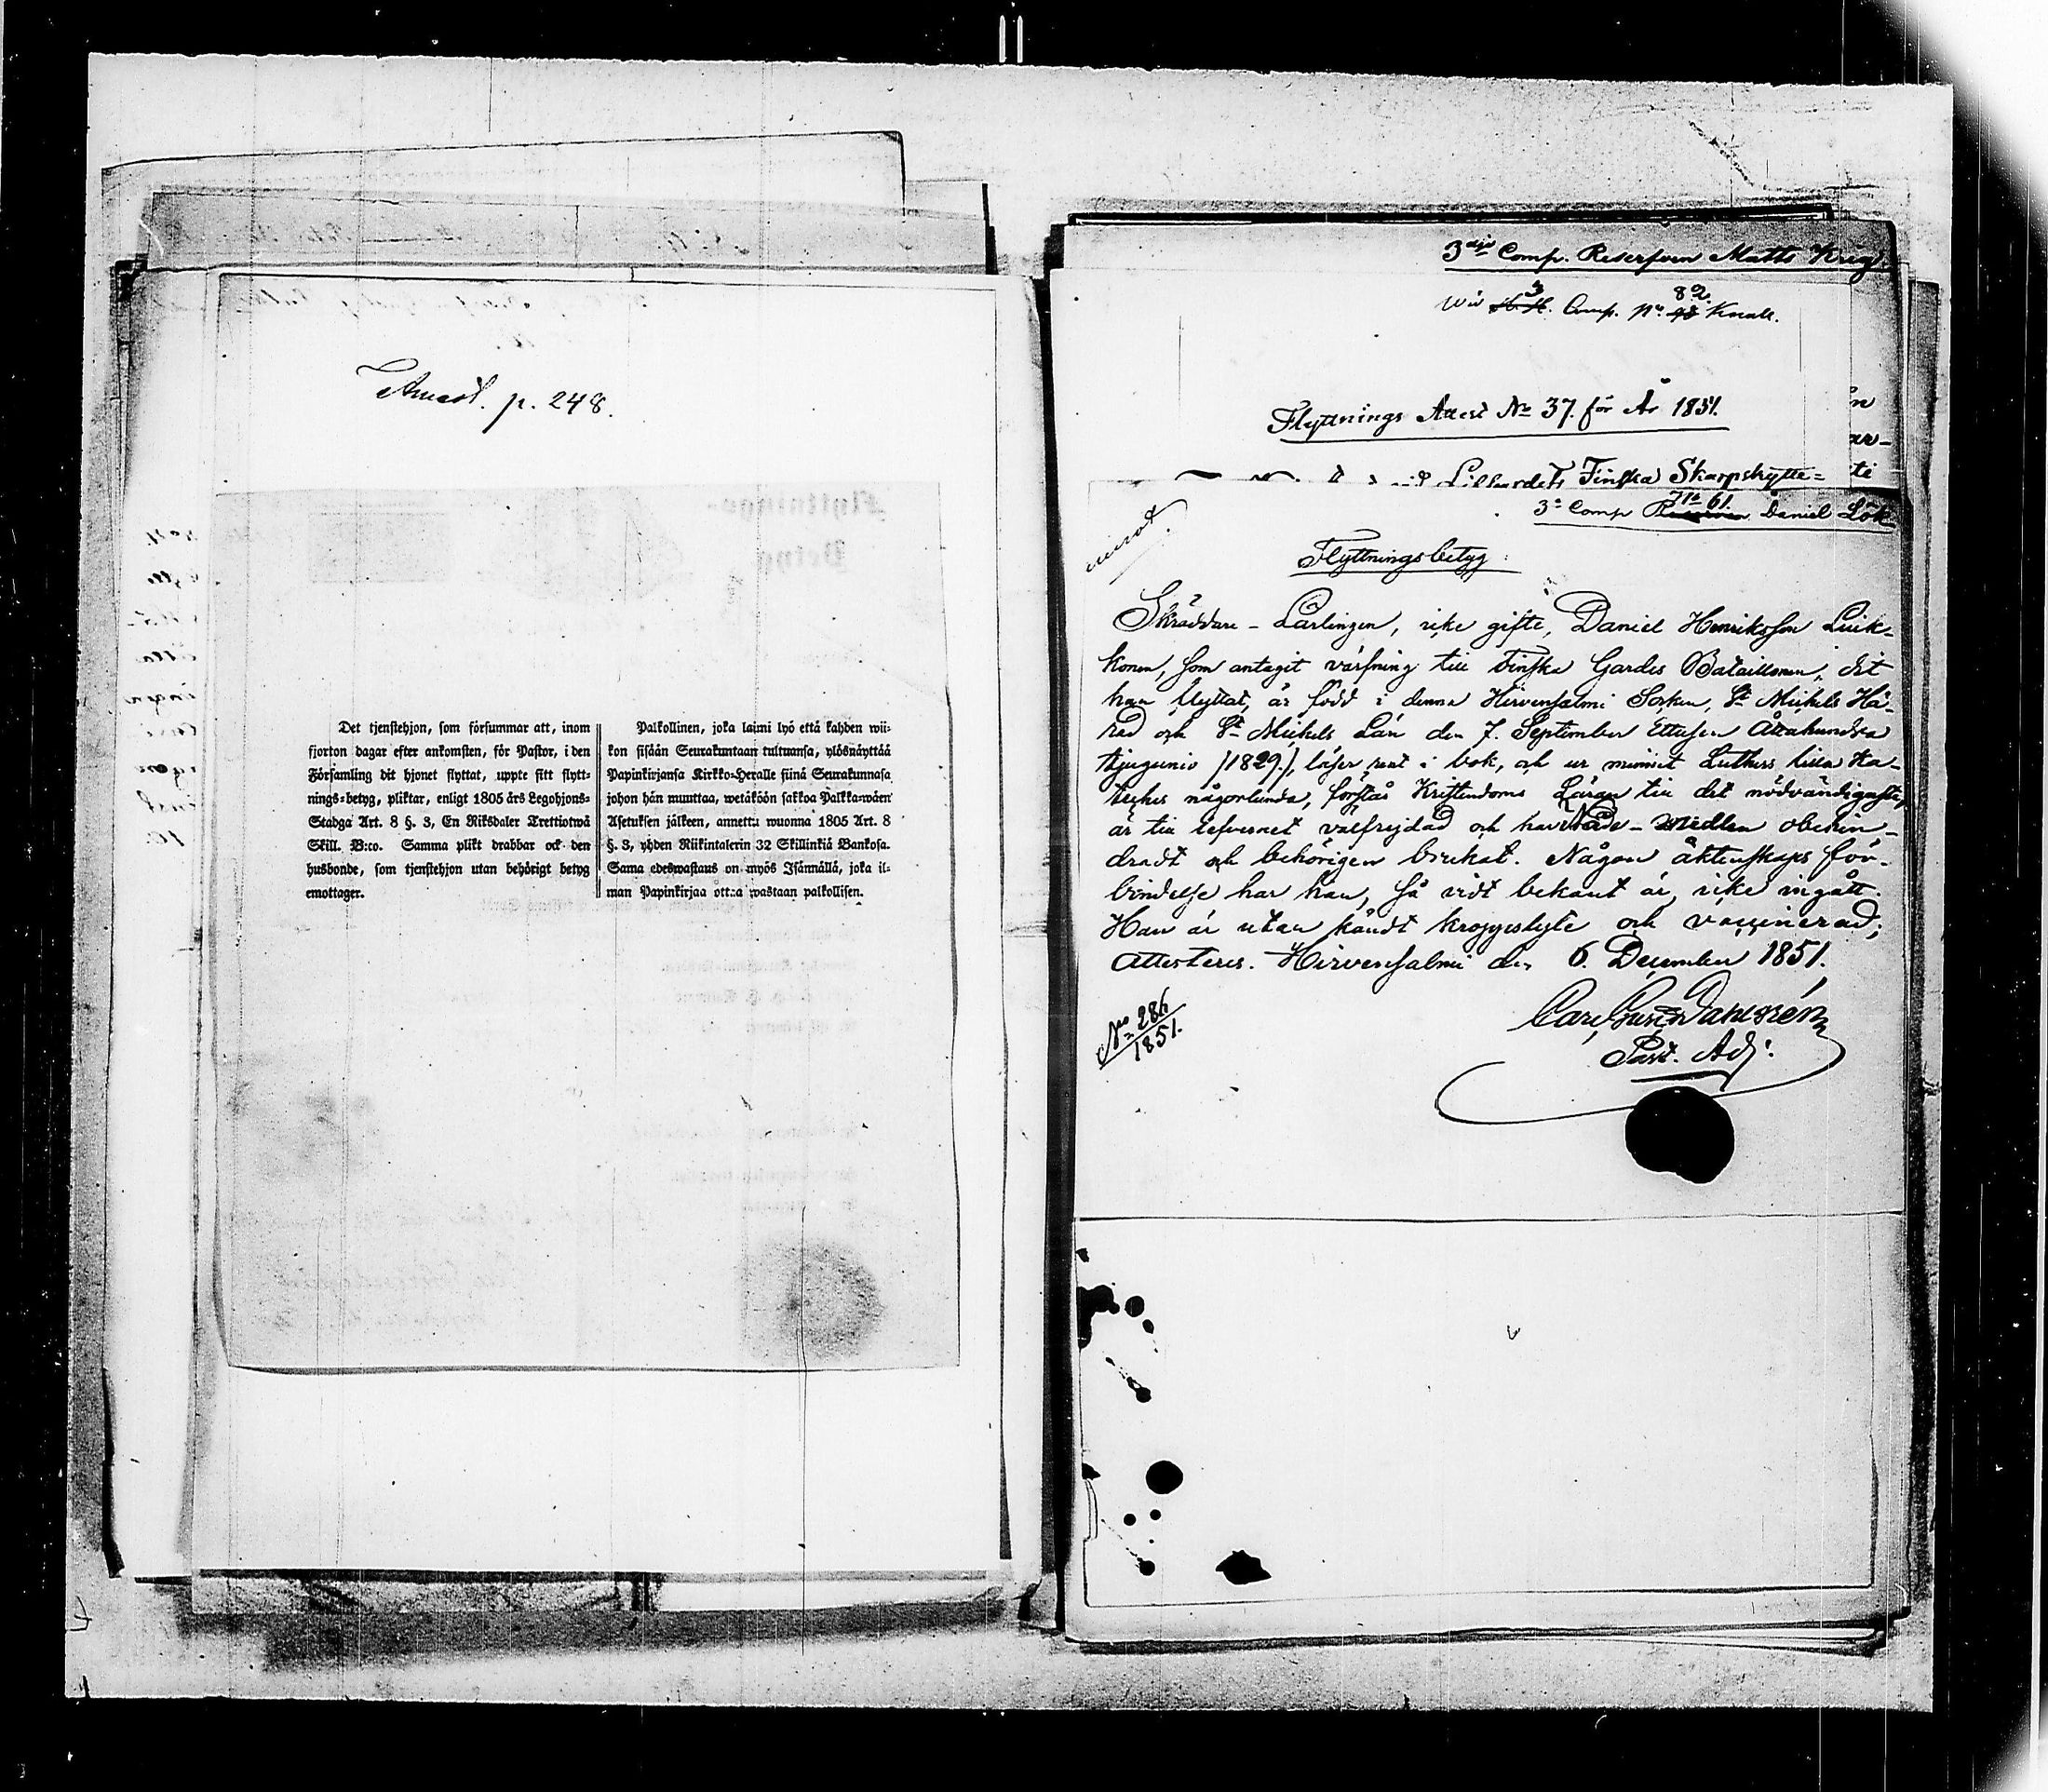 p. 248.
Det tjenstehjon, som försummar att, inom
fjorton dagar efter ankomsten, för Pastor, i den
Församling dit hjonet flyttat, uppte sitt flytt-
nings-betyg, pliktar, enligt 1805 års Legohjons-
Stadga Art. 8 §. 3, En Riksdaler Trettiotwå
Skill. B:co. Samma plikt drabbar ock den
husbonde, som tjenstehjon utan behörigt betyg
emottager.
Palkollinen, joka laimi lyö että kahden wii-
kon sisään Seurakuntaan tultuansa, ylösnäyttää
Papinkirjansa Kirkko-Heralle siinä Seurakunnasa
johon hän muuttaa, wetäköön sakkoa Palkka-wäen
Asetuksen jälkeen, annettu wuonna 1805 Art. 8
§. 3, yhden Riikintalerin 32 Skillinkiä Bankosa.
Sama edeswastaus on myös Isännällä, joka il-
man Papinkirjaa ottaa wastaan palkollisen.
3dje Comp. Reserfven Matts Krig
wid 3 Comp. No 82 Knall.
Flyttnings Attest No 37. för År 1851.
Finska Skarpskytte=
3e Comp No 61. Daniel Lök
Flyttningsbetyg
Skräddare-Lärlingen, icke gifte, Daniel Henriksson Luik-
konen, som antagit värfning till Finska Gardes Bataillonen, dit
han flyttat, är född i denna Hirvensalmi Socken, St Michels Hä-
rad och St Michels Län den 7. September Ettusen Åttahundra
tjugunio /1829./, läser rent i bok, och ur minnet Luthers lilla Ka-
teches någorlunda, förstås Kristendoms Läran till det nödvändigaste,
är till lefvernet välfrejdad och har Nåde-medlen obehin-
dradt och behörigen brukat. Någon äktenskaps för-
bindelse har han, så vidt bekant är, icke ingått.
Han är utan kändt kroppslyte och vaccinerad;
Attesteras. Hirvensalmi den 6. December 1851.
No 286
1851.
Past. Adj.